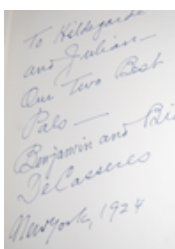 To Hildegarde
and Julian—
Our Two Best
Pals—
Benjamin and Bio
DeCasseres
New York, 1924